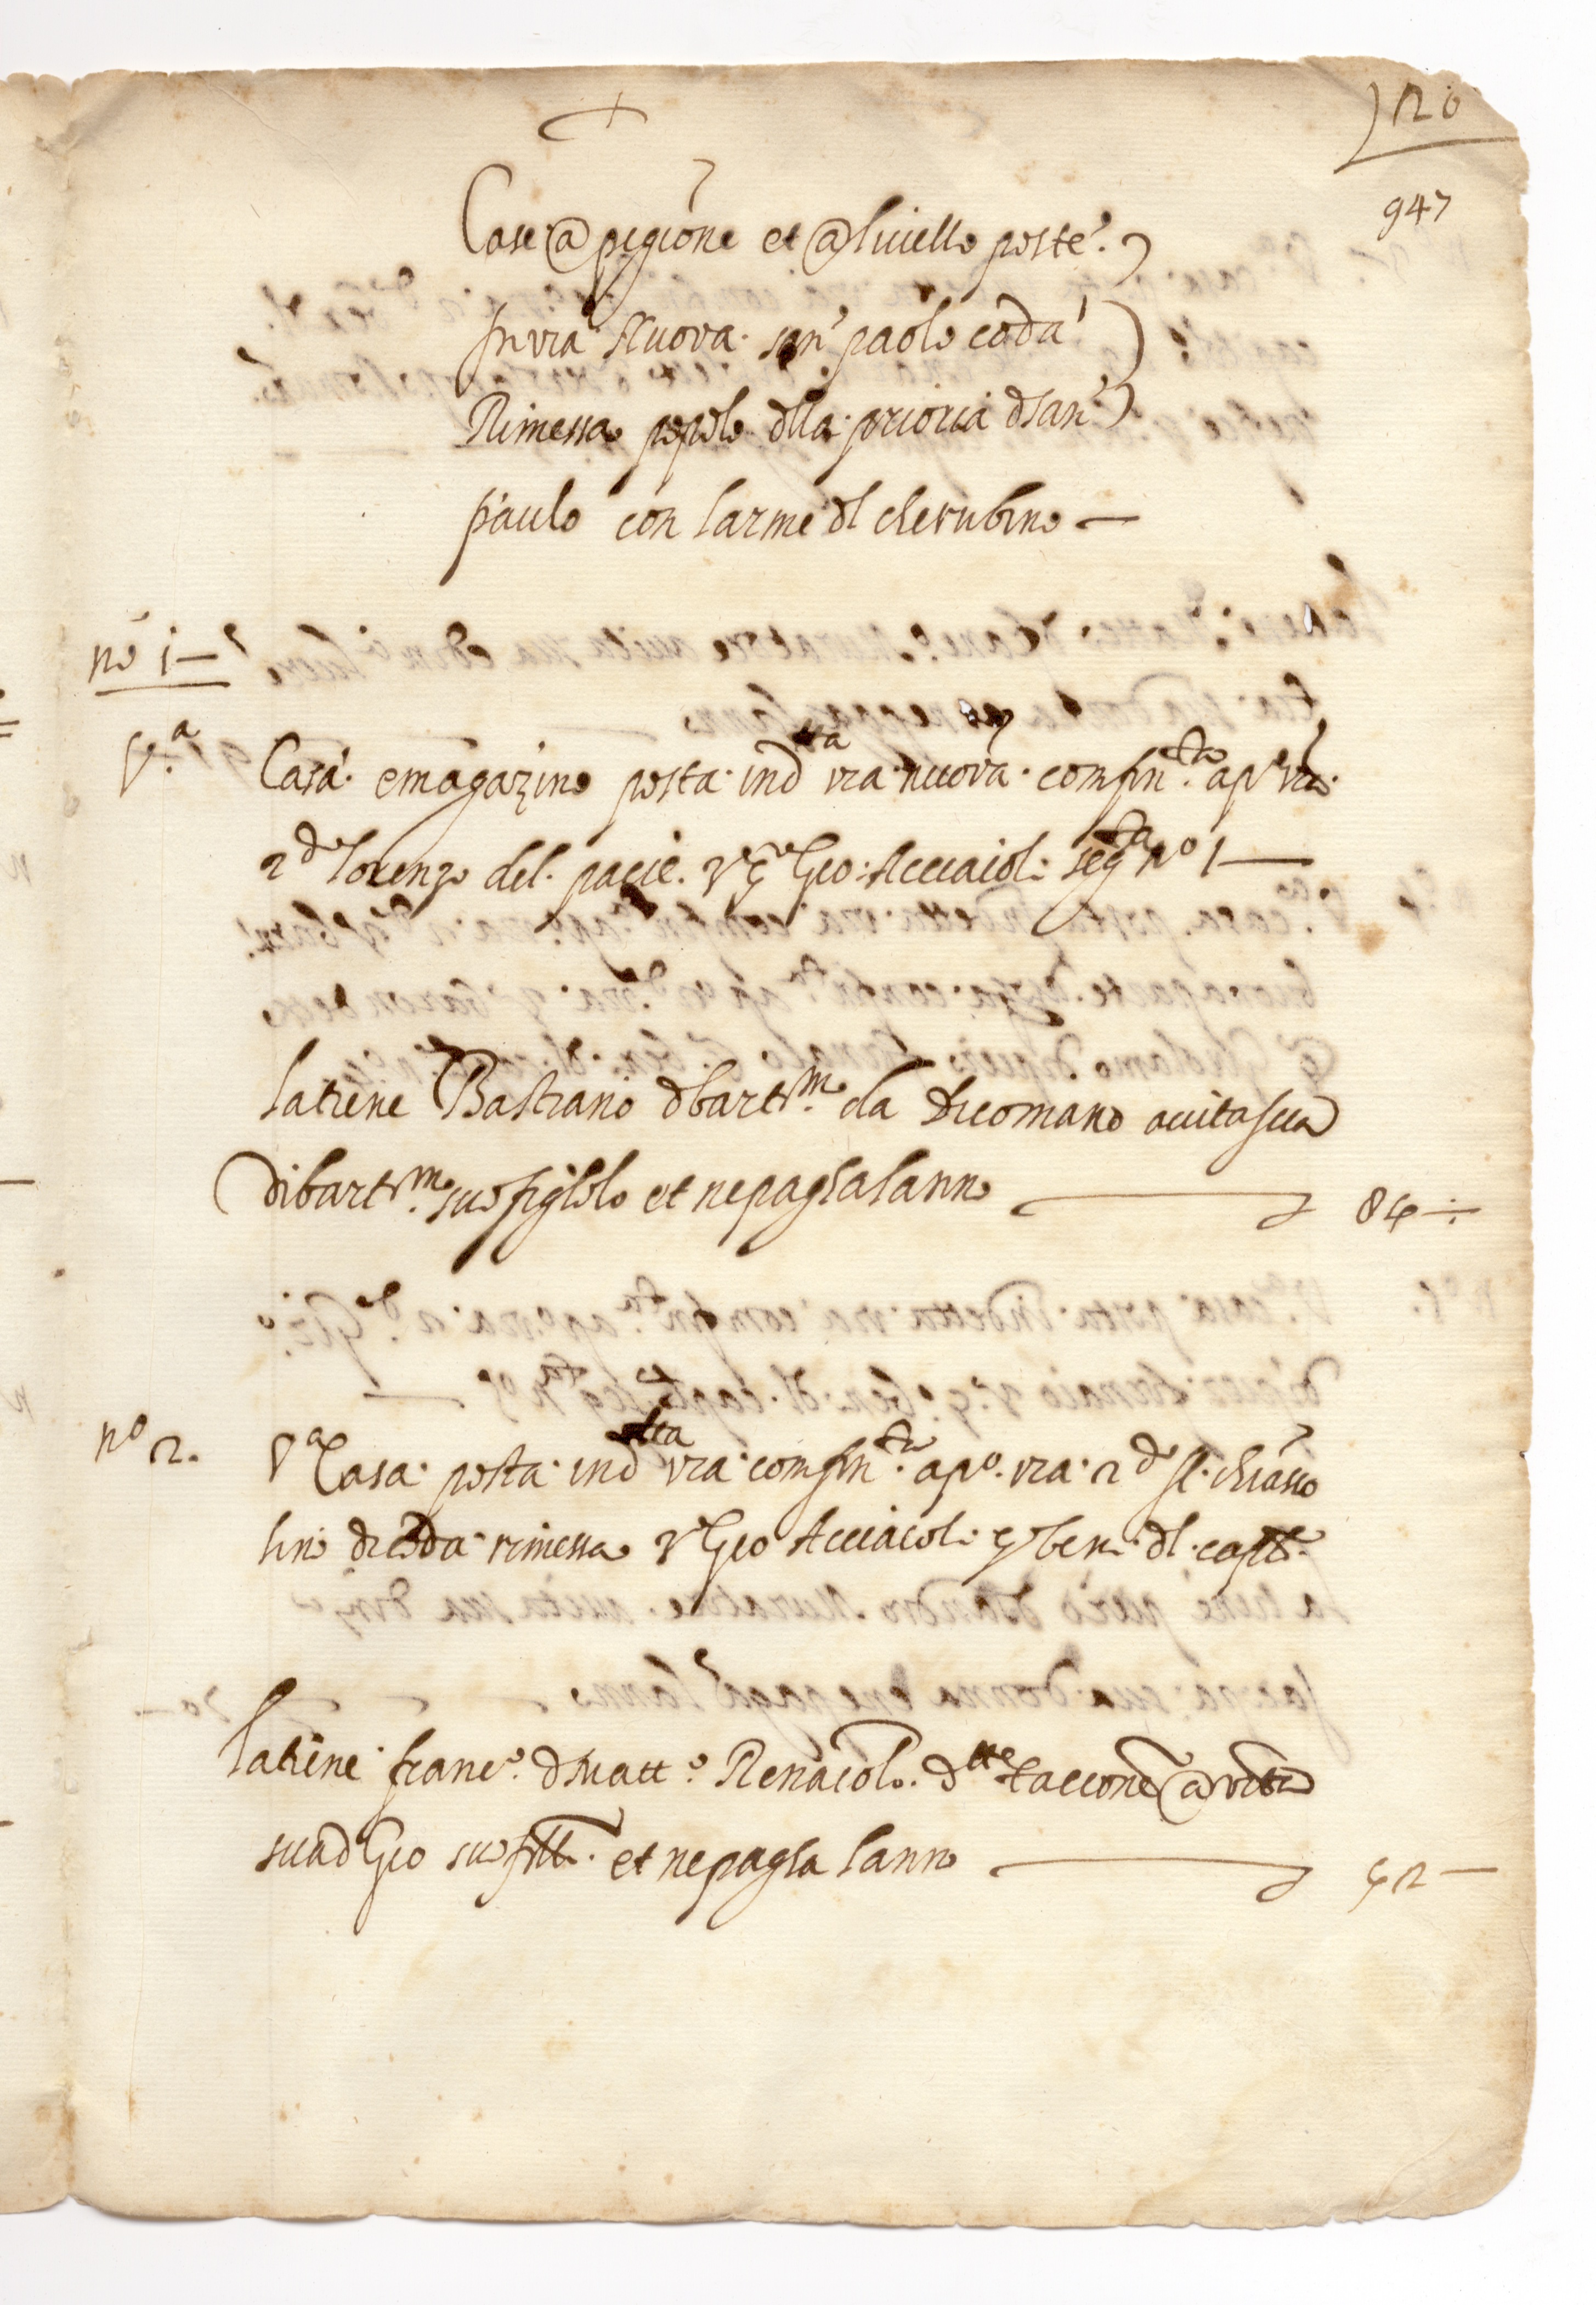 120
947
Case @ pigione et @ livello poste
In via Nuova san paolo coda
Rimessa popolo dlla prioria dsan
paulo con larme dl cherubino —
no i —
Va
Casa emagazino posta ind tta via nuova confin. ta apo via
2 do lorenzo del pacie. 3o Gio: Acciaiol: segta no 1 —
latiene Bastiano dbartmo da Dicomano avitasua
dibartmo suo figliolo et nepaghalanno 84 ÷
no 2. Va Casa posta ind tta via confin. ta apo. via 2 do il chiasso
lino di coda rimessa 3o Gio Acciaiol: 4o ben. dl. capto.
latiene franco. dmatto. Renaiolo. dtto taccone @ vita
suad Gio suo figlo. et nepagha lanno 42 —